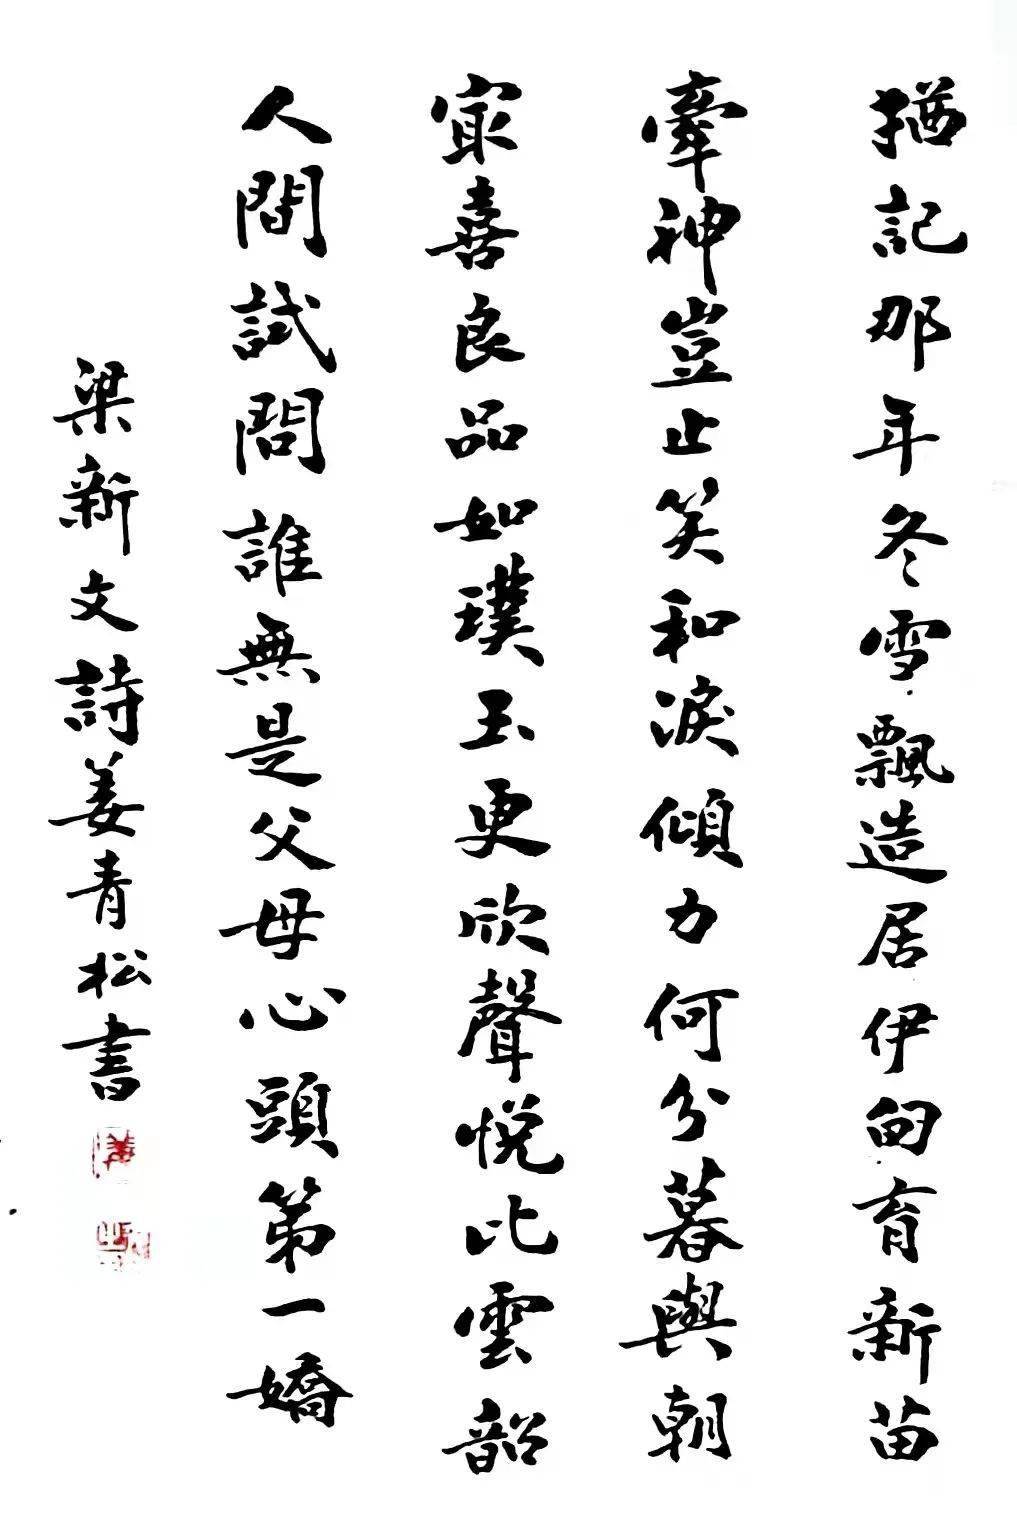 猶記那年冬雪飄造居伊甸育新苗
牽神豈止笑和淚傾力何分暮與朝
最喜良品如璞玉更欣聲悦比雲韶
人間試問誰無是父母心頭第一嬌
梁新文詩姜青松書